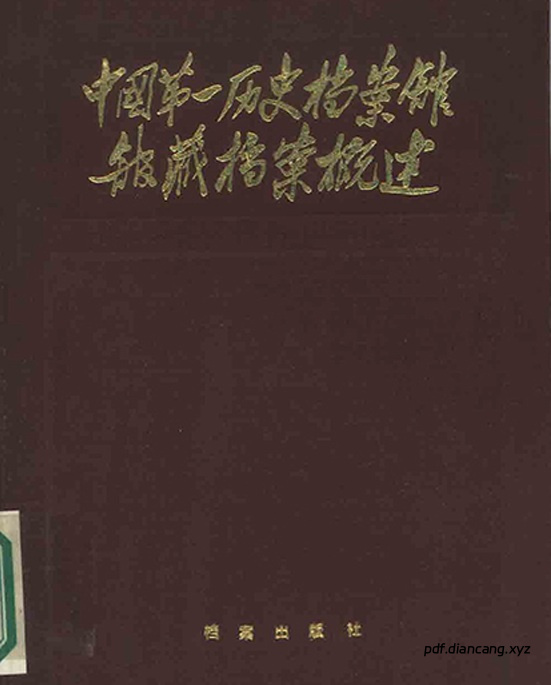 中國第一历史档案館
館藏档案概述
档案出版社
pdf.diancang.xyz